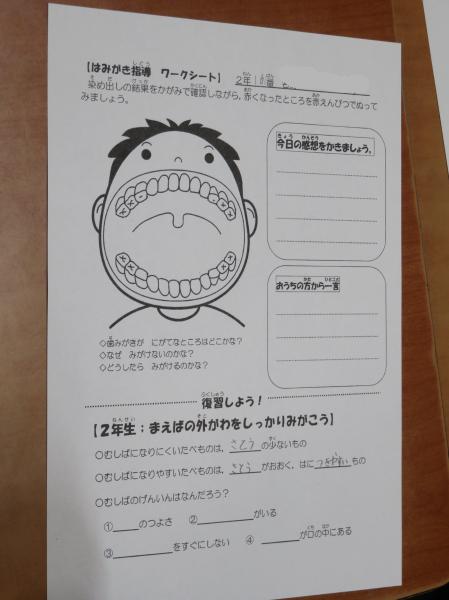 【はみがき指導　ワークシート】　2年1組　番
染め出しの結果をかがみで確認しながら,赤くなったところを赤えんぴつでぬって
みましょう。
今日の感想をかきましょう。
おうちの方から一言
◇歯みがきが　にがてなところはどこかな？
◇なぜ　みがけないのかな？
◇どうしたら　みがけるのかな？
復習しよう！
【2年生：まえばの外がわをしっかりみがこう】
○むしばになりにくいたべものは，さとうの少ないもの
○むしばになりやすいたべものは，さとうがおおく，はにつきやすいもの
○むしばのげんいんはなんだろう？
①のつよさ　②がいる
③をすぐにしない　④が口の中にある